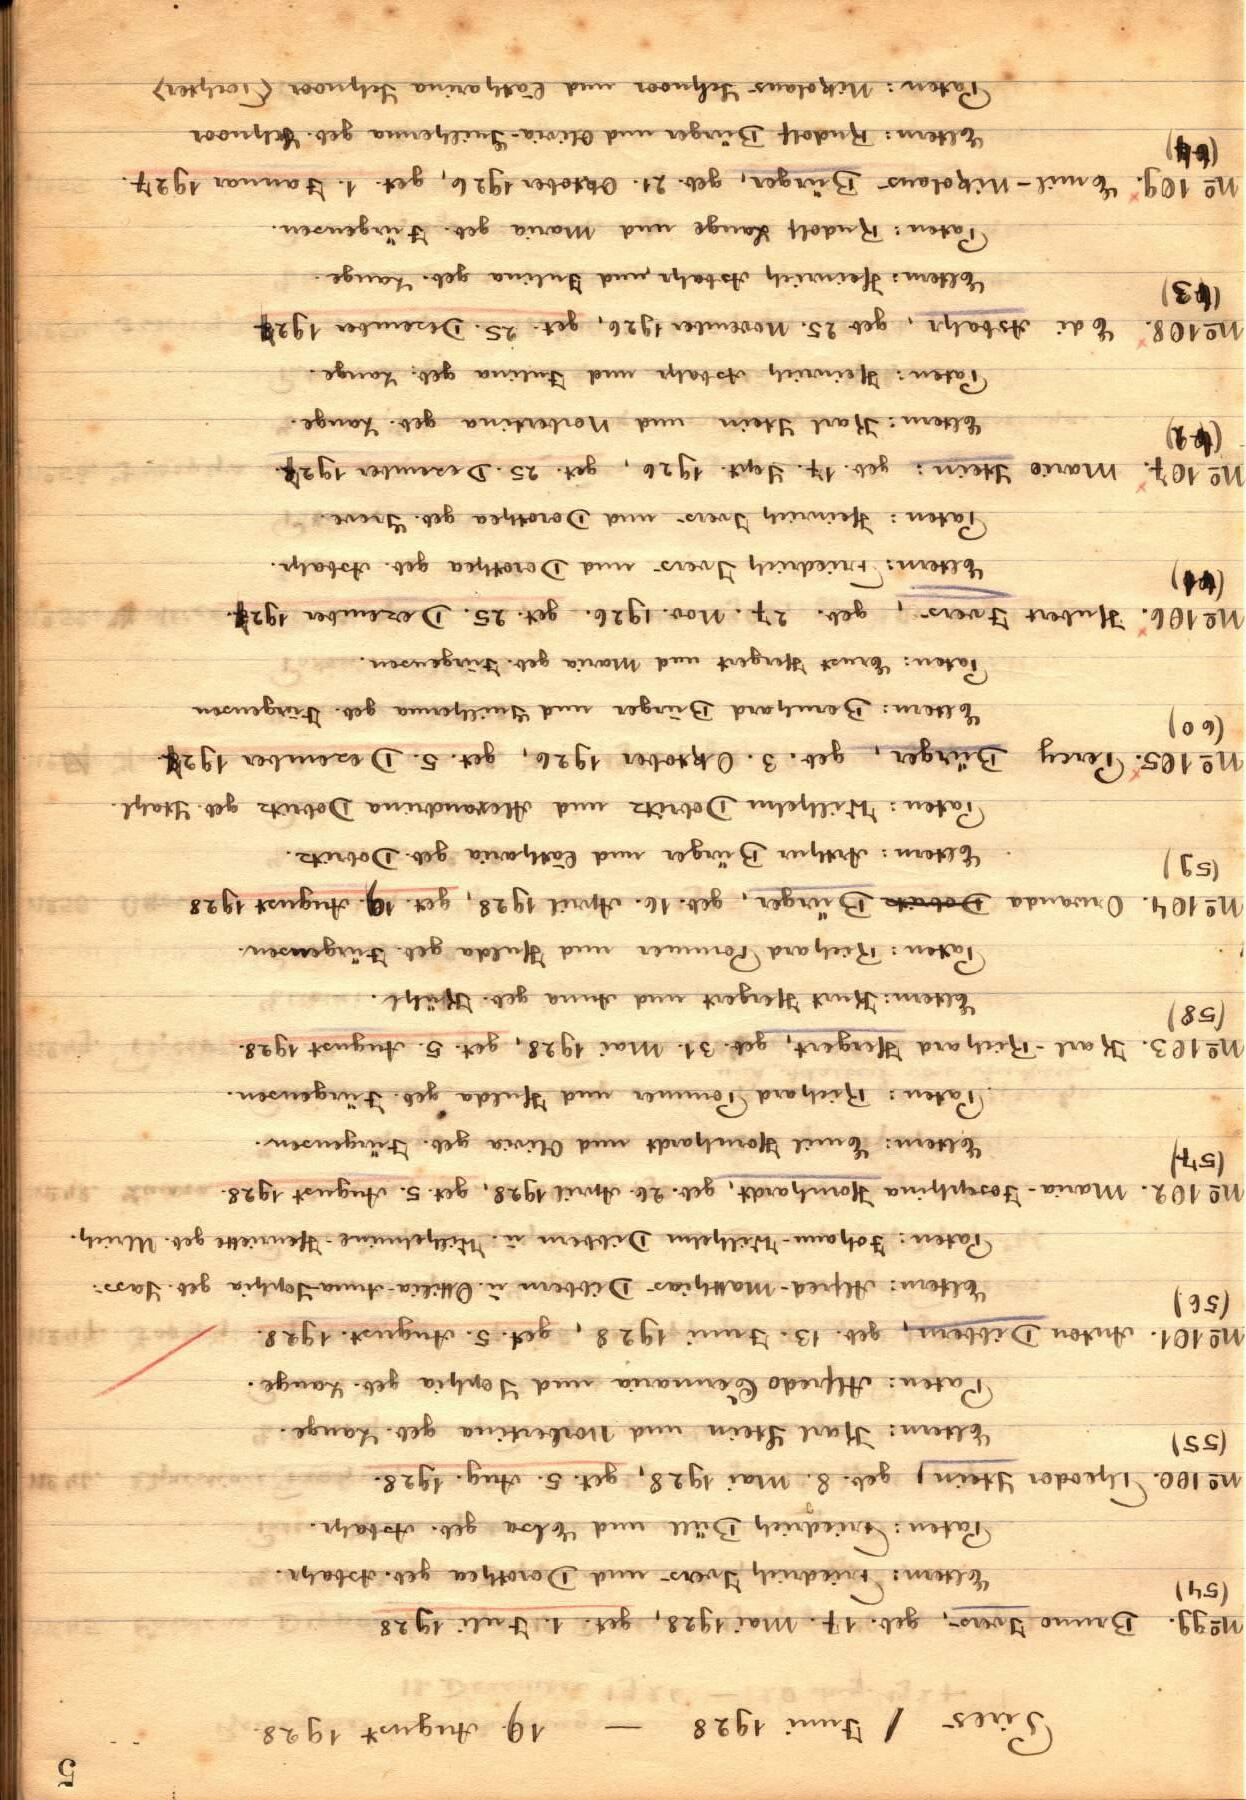 5
Pires / Juni 1928 — 19. August 1928.
No 99. Bruno Ivers, geb. 17. Mai 1928, get. 1. Juli 1928
(54)
Eltern: Friedrich Ivers und Dorothea geb. Asbahr.
Paten: Friedrich Büll und Elsa geb. Asbahr.
No 100. Theodor Stein, geb. 8. Mai 1928, get. 5. Aug. 1928.
(55)
Eltern: Karl Stein und Norbertina geb. Lange.
Paten: Alfredo Cennaria und Sophia geb. Lange.
No 101. Anton Dibbern, geb. 13. Juni 1928, get. 5. August. 1928.
(56)
Eltern: Alfred-Matthias Dibbern u. Ottilia-Anna-Sophia geb. Jass.
Paten: Johann-Wilhelm Dibbern u. Wilhelmine-Henriette geb. Ulrich.
No 102. Maria-Josephina Hornhardt, geb. 26. April 1928, get. 5. August 1928.
(57)
Eltern: Emil Hornhardt und Olivia geb. Jürgensen.
Paten: Richard Pommer und Hulda geb. Jürgensen.
No 103. Karl-Richard Hergert, geb. 31. Mai 1928, get. 5. August 1928.
(58)
Eltern: Kurt Hergert und Anna geb. Kühl.
Paten: Richard Pommer und Hulda geb. Jürgensen.
No 104. Orwanda Dobritz Bürger, geb. 16. April 1928, get. 19. August 1928
(59)
Eltern: Arthur Bürger und Catharia geb. Dobritz.
Paten: Wilhelm Dobritz und Alexandrina Dobritz geb. Stahl.
No 105. Percy Bürger, geb. 3. Oktober 1926, get. 5. Dezember 192
(60)
Eltern: Bernhard Bürger und Guilherma geb. Jürgensen
Paten: Ernst Hergert und Maria geb. Jürgensen.
No 106. Hubert Ivers, geb. 27. Nov. 1926. get. 25. Dezember 192
(61)
Eltern: Friedrich Ivers und Dorothea geb. Asbahr.
Paten: Heinrich Ivers und Dorothea geb. Greve.
No 107. Mario Stein: geb. 17. Sept. 1926, get. 25. Dezember 192
(62)
Eltern: Karl Stein und Norbertina geb. Lange.
Paten: Heinrich Asbahr und Julina geb. Lange.
No 108. Edi Asbahr, geb. 25. November 1926, get. 25. Dezember 192
(63)
Eltern: Heinrich Asbahr und Julina geb. Lange.
Paten: Rudolf Lange und Maria geb. Jürgensen.
No 109. Emil-Nikolaus Bürger, geb. 21. Oktober 1926, get. 1. Januar 1927.
(64)
Eltern: Rudolf Bürger und Olivia-Guilherma geb. Schnoor
Paten: Nikolaus Schnoor und Catharina Schnoor (Tochter)